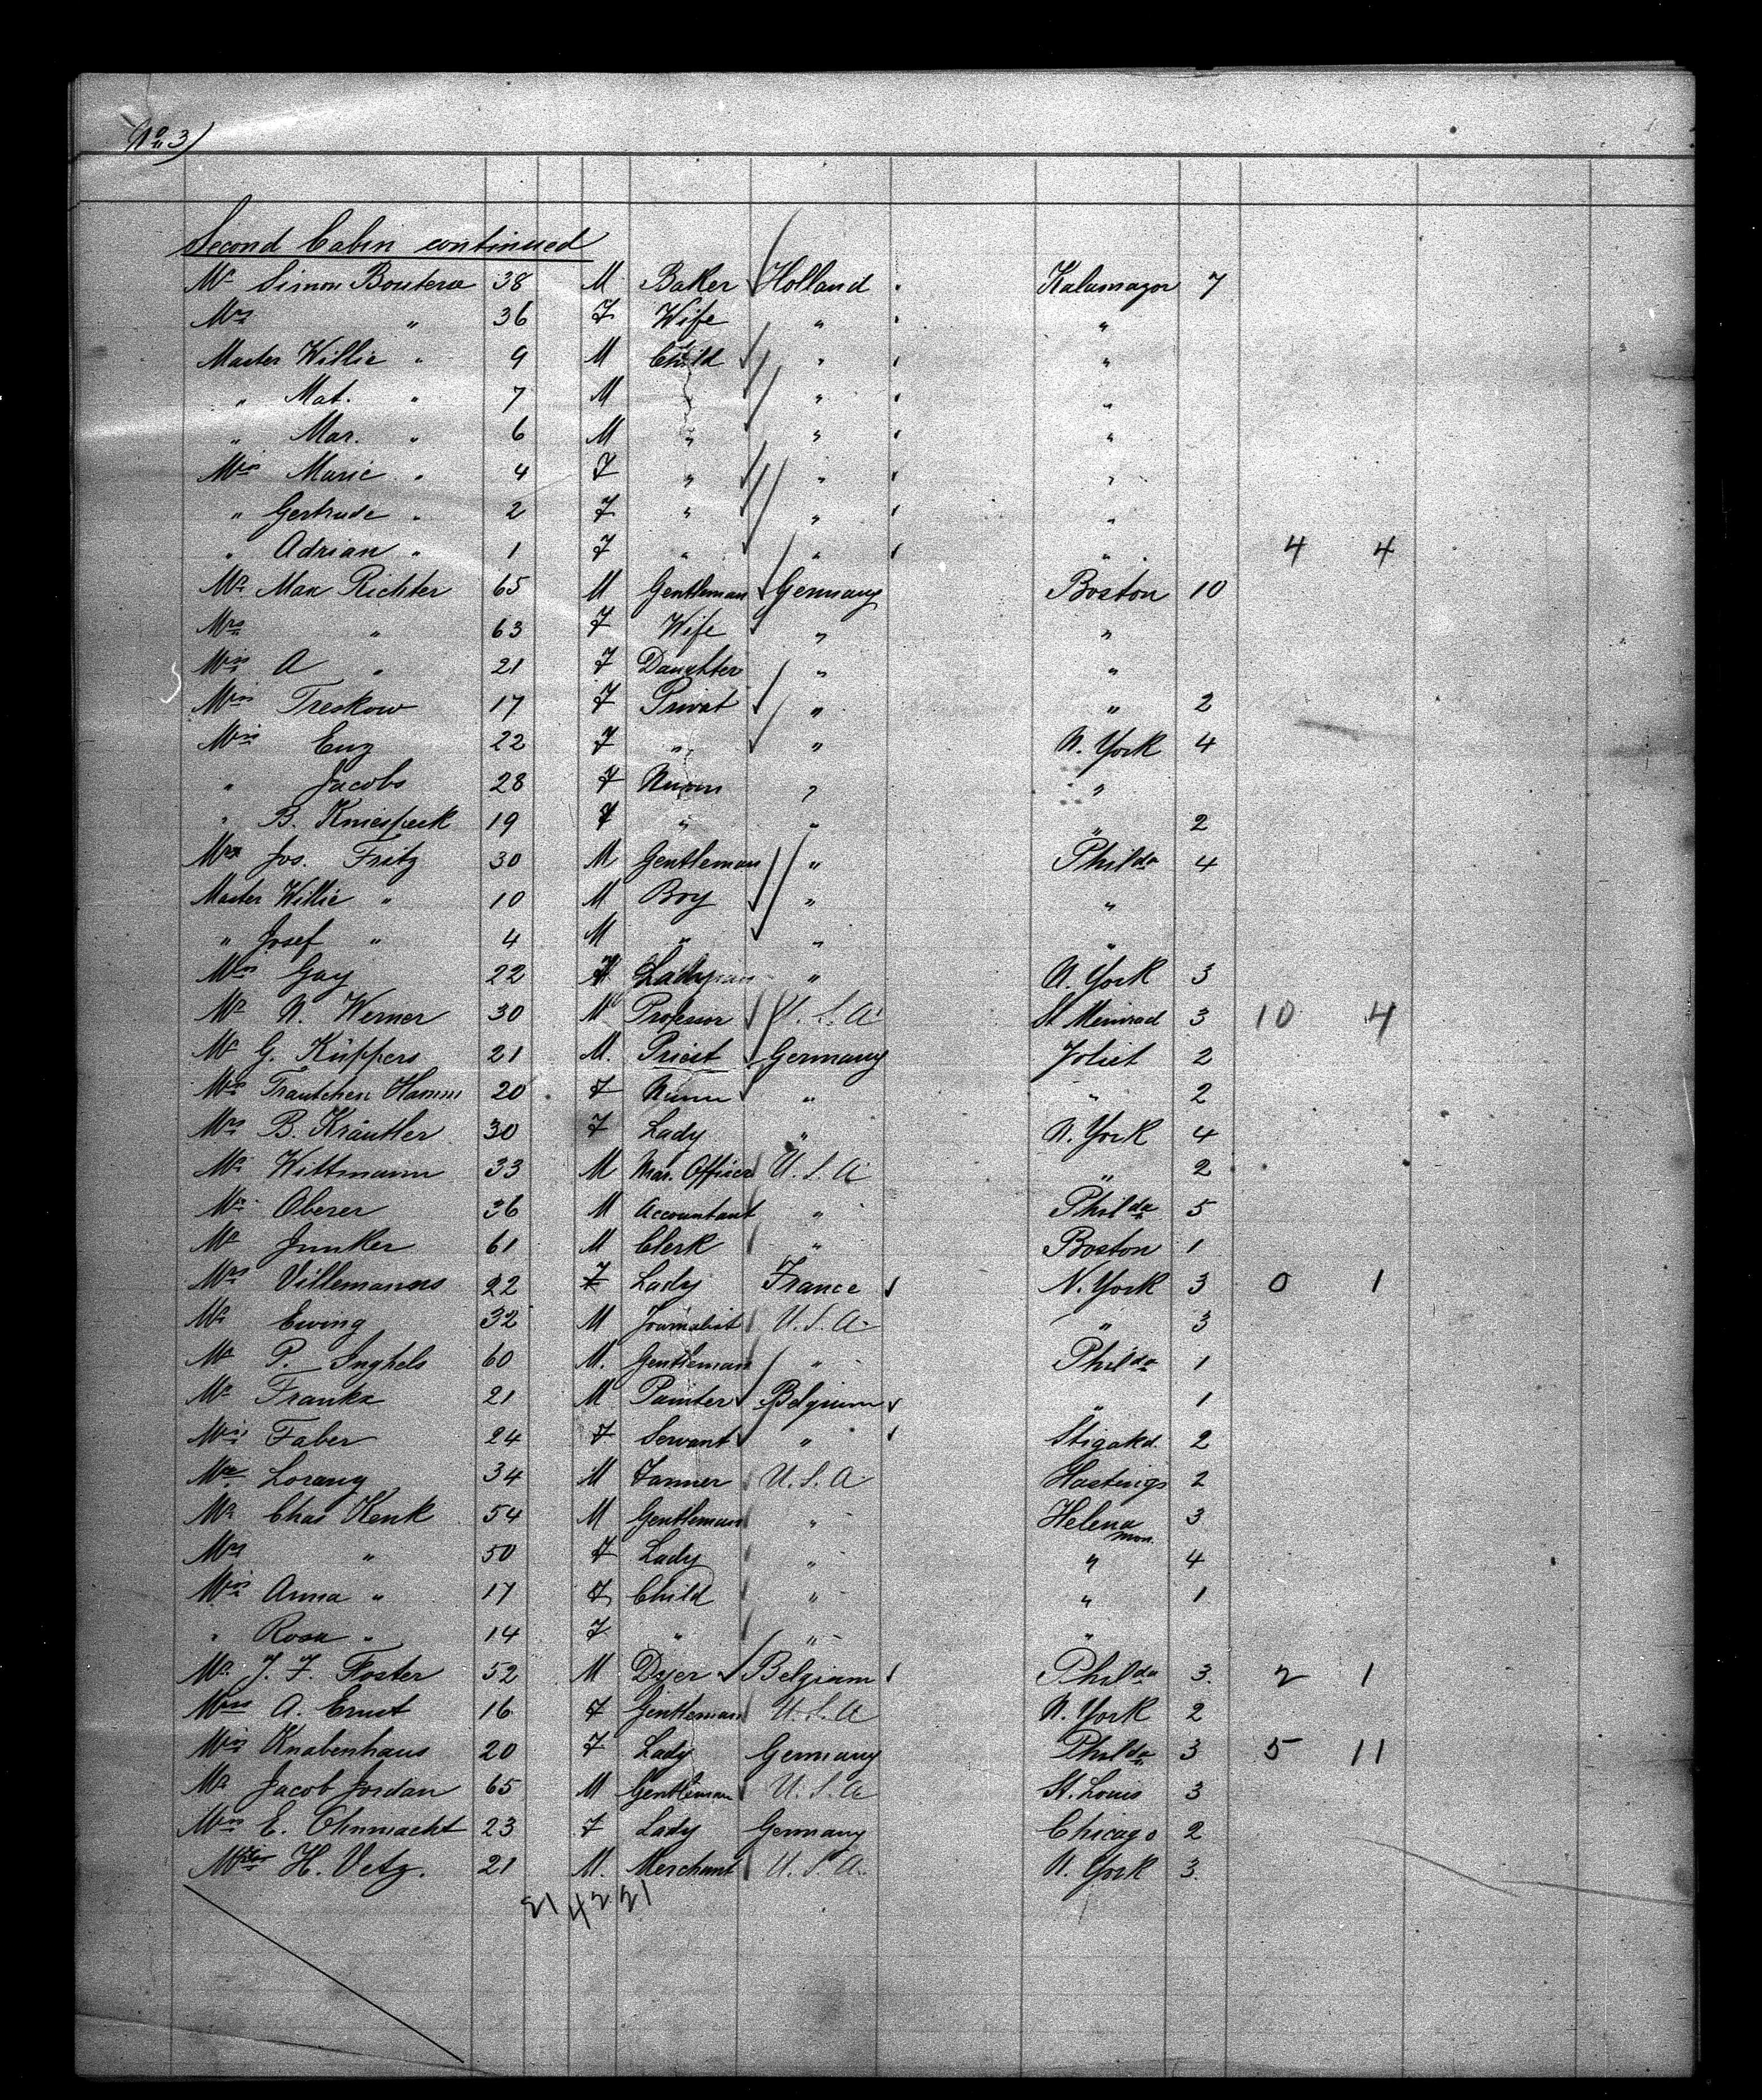 No 3)
Second Cabin continued
Mr Simon Bouterse 38 M Baker Holland Kalamazoo 7
Mrs " 36 F Wife " "
Master Willie " 9 M Child " "
" Mat. " 7 M " " "
" Mar. " 6 M " " "
Miss Marie " 4 F " " "
" Gertrude " 2 F " " "
" Adrian " 1 F " " " 4 4
Mr Max Richter 65 M Gentleman Germany Boston 10
Mrs " 63 F Wife " "
Miss A " 21 F Daughter " "
Miss Treskow 17 F Privat " " 2
Miss Enz 22 F " " N. York 4
" Jacobs 28 F " "
" B. Kniespeck 19 F " " " 2
Jos. Fritz 30 M Gentleman " Philda 4
Master Willie " 10 M Boy " "
" Josef " 4 M " " "
Gay 22 " N. York 3
Mr N. Werner 30 M Professor U. S. A St Meinrad 3 10 4
Mr G. Küppers 21 M. Priest Germany Joliet 2
Trautchen Hamm 20 F " " 2
Mrs B. Kräutler 30 F Lady " N. York 4
Mr Wittmann 33 M Mar. Officer U. S. A " 2
Mr Oberer 36 M Accountant " Philda 5
Mr Junker 61 M Clerk " Boston 1
Mrs 22 F Lady France N. York 3 0 1
Mr Ewing 32 M Journalist U. S. A " 3
Mr P. Inghels 60 M. Gentleman " Philda 1
Mr 21 M Painter Belgium " 1
Miss Faber 24 F Servant " 2
Mr Lorang 34 M U. S. A Hastings 2
Mr Chas Kenk 54 M Gentleman " Helena Mon. 3
Mrs " 50 F Lady " " 4
Miss Anna " 17 F Child " " 1
" Rosa " 14 F " " "
Mr J. F. Foster 52 M Dyer Belgium Philda 3. 2 1
A. Ernst 16 F Gentleman U. S. A N. York 2
Miss Knabenhaus 20 F Lady Germany Philda 3 5 11
Mr Jacob Jordan 65 M Gentleman U. S. A St. Louis 3
E. Ohnmacht 23 F Lady Germany Chicago 2
H. Vetz. 21 M. Merchant U. S. A. N. York 3.
21 42 21